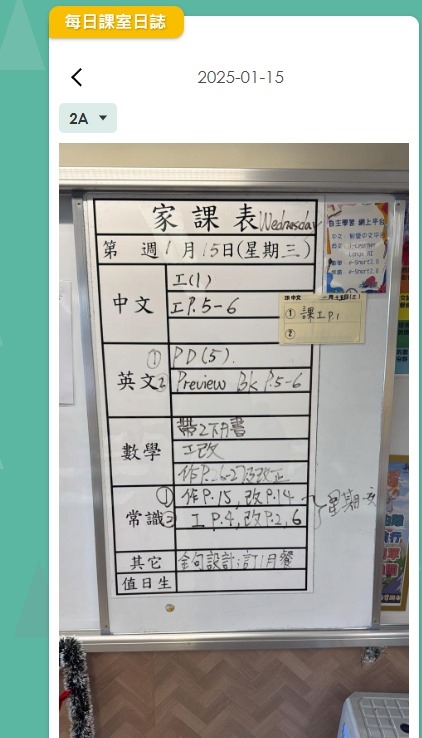 每日課室日誌
2025-01-15
2A
家課表 Wednesday
第 週 1月15日(星期三)
中文
工(1)
工P.5-6
① 課工P.1
②
英文
① PD(5).
② Preview Bk P.5-6
數學
帶2下A書
工改
常識
① 作P.15, 改P.14
② 工P.4, 改P.2, 6
星期
其它
訂1月餐
值日生
自主學習 網上平台